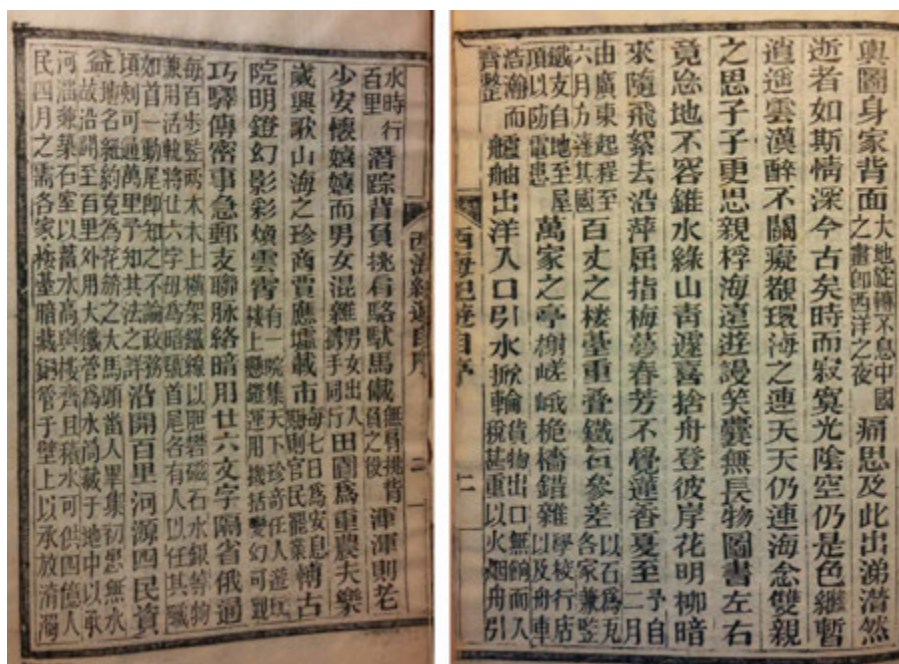 輿圖身家背面大地旋轉不息中國之晝即西洋之夜痛思及此出涕潸然
逝者如斯情深今古矣時而寂寞光陰空仍是色繼暫
逍遙雲漢醉不關癡覩環海之連天天仍連海念雙親
之思子子更思親桴海遠遊謾笑囊無長物圖書左右
竟忩地不容錐水綠山青遽喜捨舟登彼岸花明柳暗
來隨飛絮去沿萍屈指梅夢春芳不覺蓮香夏至予自二月
由廣東起程至六月方達其國百丈之楼臺重疊鐵石參差以石爲瓦各家兼監
鐵支自地至屋頂以防電患萬家之亭榭嵯峨桅檣錯雜學校行店以及舟車
浩瀚而齊整艫舳出洋入口引水掀輪貨物出口無餉而入稅甚重以火烟舟引
西海紀遊自序
二
水時行百里潛踪背負挑肩駱馱馬儎無肩挑背負之役渾渾則老
少安懷嬉嬉而男女混雜男女出入攜手同行田園爲重農夫樂
歲興歌山海之珍商賈應墟載市每七日爲安息期則官民罷業博古
院明鐙幻影彩煥雲霄有一院集天下珍奇任人遊玩樓上懸鐙運用機括變幻可觀
巧驛傳密事急郵支聯脉絡暗用廿六文字隔省俄通
每百步監兩木木上橫架鐵線以胆礬磁石水銀等物兼用活軌將廿六字母爲暗號首尾各有人以任其職
如首一動尾即知之不論政務頃刻可通萬里予知其法之詳沿開百里河源四民資
益地名紐約克爲花旂之大馬頭番人畢集初患無水故沿開至百里外用大鐵管爲水筒藏于地中以承
河溜兼築石室以蓄水高與樓齊且積水可供四億人民四月之需各家樓臺暗藏銅管于壁上以承放清濁
西海紀遊自序
二